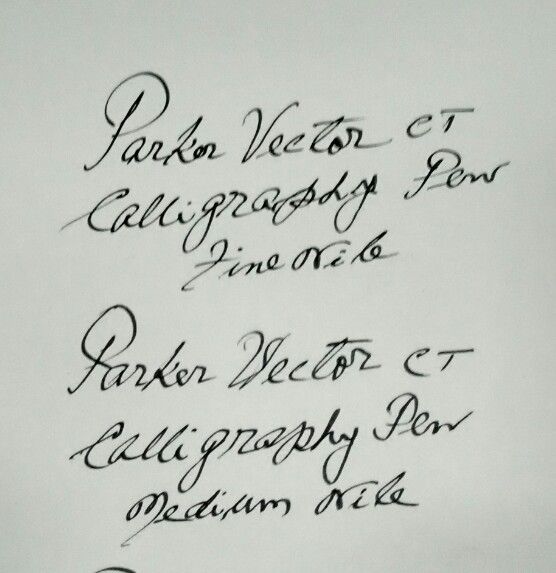 Parker Vector CT
Calligraphy Pen
Fine Nile
Parker Vector CT
Calligraphy Pen
Medium Nile